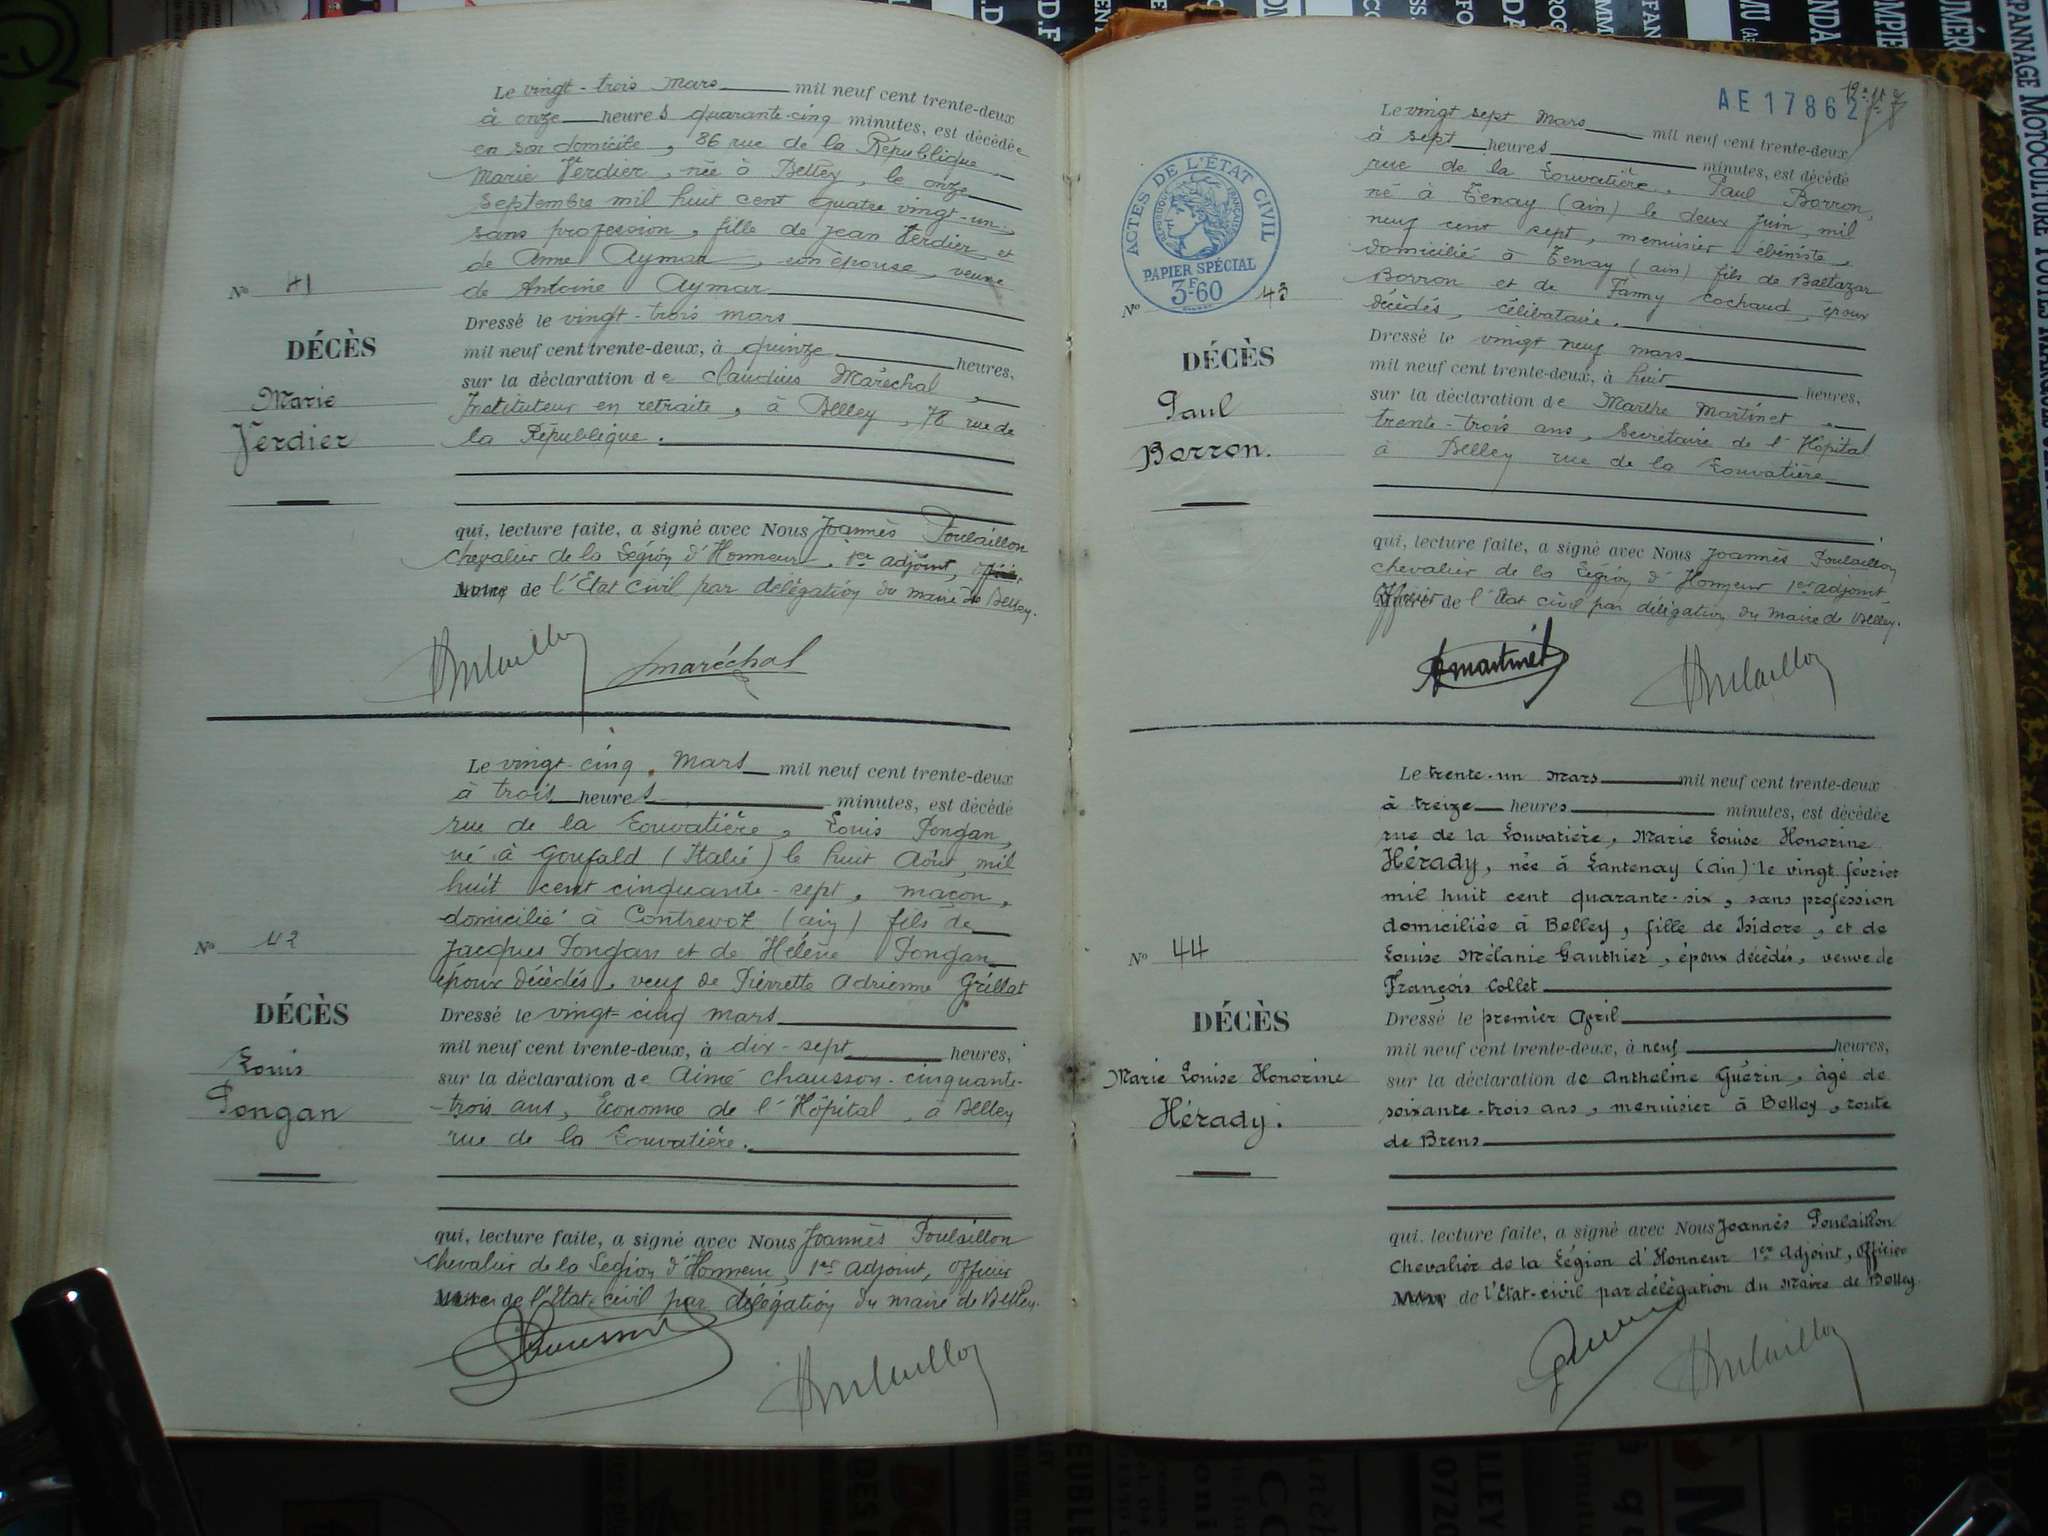 Le vingt-trois mars mil neuf cent trente-deux
à onze heures quarante-cinq minutes, est décédée
en son domicile, 86 rue de la République,
Marie Verdier, née à Belley, le onze
septembre mil huit cent quatre vingt-un,
sans profession, fille de Jean Verdier et
de Anne Aymar, son épouse, veuve
de Antoine Aymar
Dressé le vingt-trois mars
mil neuf cent trente-deux, à quinze heures,
sur la déclaration de Claudius Maréchal,
Instituteur en retraite, à Belley, 78 rue de
la République.
qui, lecture faite, a signé avec Nous Joannès Poulaillon
Chevalier de la Légion d'Honneur, 1er adjoint,
de l'Etat civil par délégation du maire de Belley.
Maréchal
No 41
DÉCÈS
Marie
Verdier
Le vingt-cinq Mars mil neuf cent trente-deux
à trois heures minutes, est décédé
rue de la Louvatière, Louis Pongan,
né à Goufald (Italie) le huit Août mil
huit cent cinquante-sept, maçon,
domicilié à Contrevoz (ain) fils de
Jacques Pongan et de Hélène Pongan
époux décédés, veuf de Pierrette Adrienne Grillat
Dressé le vingt-cinq mars
mil neuf cent trente-deux, à dix-sept heures,
sur la déclaration de Aimé Chausson, cinquante-
-trois ans, Econome de l'Hôpital, à Belley
rue de la Louvatière.
qui, lecture faite, a signé avec Nous Joannès Poulaillon
Chevalier de la Légion d'Honneur, 1er Adjoint, Officier
de l'Etat-civil par délégation du maire de Belley.
No 42
DÉCÈS
Louis
Pongan
AE 17862
ACTES DE L'ÉTAT CIVIL
RÉPUBLIQUE FRANÇAISE
PAPIER SPÉCIAL
3F60
Le vingt sept Mars mil neuf cent trente-deux
à sept heures minutes, est décédé
rue de la Louvatière, Paul Borron,
né à Tenay (ain) le deux juin mil
neuf cent sept, menuisier-ébéniste,
domicilié à Tenay (ain) fils de Baltazar
Borron et de Fanny Cochaud, époux
décédés, célibataire.
Dressé le vingt neuf mars
mil neuf cent trente-deux, à huit heures,
sur la déclaration de Marthe Martinet,
trente-trois ans, Secrétaire de l'Hôpital
à Belley rue de la Louvatière
qui, lecture faite, a signé avec Nous Joannès Poulaillon
Chevalier de la Légion d'Honneur 1er adjoint
Officier de l'Etat civil par délégation du Maire de Belley.
Martinet
No 43
DÉCÈS
Paul
Borron.
Le trente-un Mars mil neuf cent trente-deux
à treize heures minutes, est décédée
rue de la Louvatière, Marie Louise Honorine
Hérady, née à Lantenay (ain) le vingt février
mil huit cent quarante-six, sans profession
domiciliée à Belley, fille de Isidore, et de
Louise Mélanie Gauthier, époux décédés, veuve de
François Collet
Dressé le premier Avril
mil neuf cent trente-deux, à neuf heures,
sur la déclaration de Anthelme Guérin, âgé de
soixante-trois ans, menuisier à Belley, route
de Brens
qui, lecture faite, a signé avec Nous Joannès Poulaillon
Chevalier de la Légion d'Honneur 1er Adjoint, Officier
de l'Etat-civil par délégation du Maire de Belley
No 44
DÉCÈS
Marie Louise Honorine
Hérady.